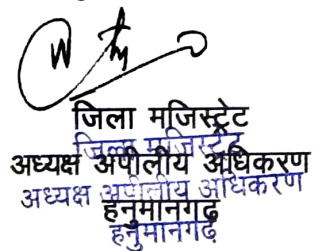 जिला मजिस्ट्रेट
जिला मजिस्ट्रेट
अध्यक्ष अपीलीय अधिकरण
अध्यक्ष अपीलीय अधिकरण
हनुमानगढ़
हनुमानगढ़